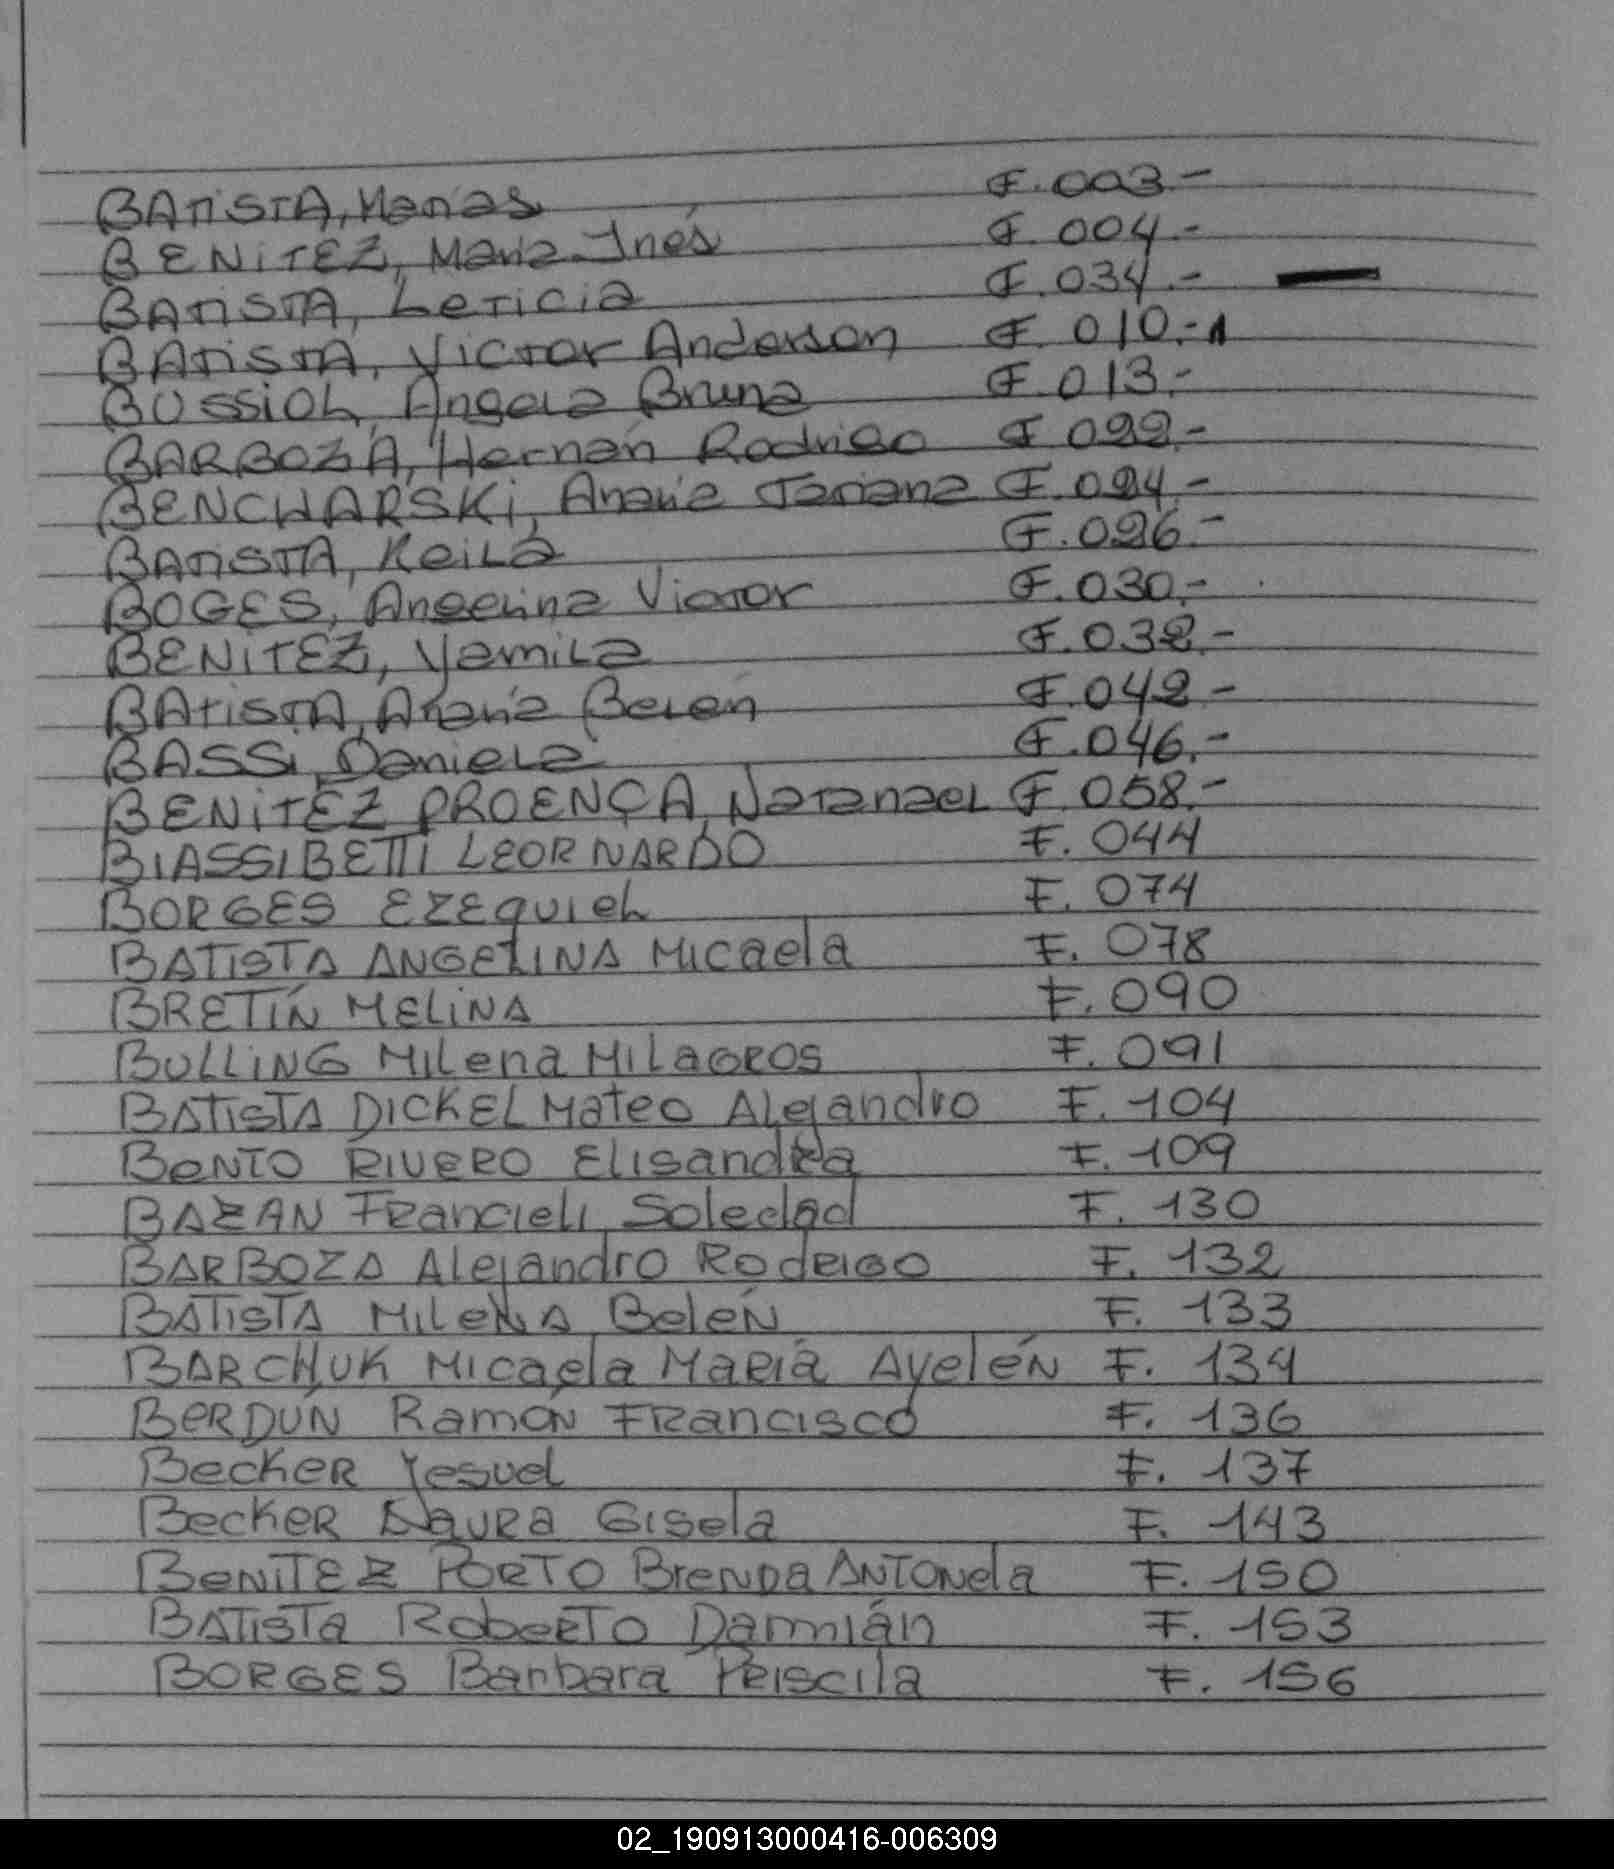 BATISTA, Matías F. 003.-
BENITEZ, María Inés F. 004.-
BATISTA, Leticia F. 034.-
BATISTA, Victor Anderson F. 010.-
BUSSIOL, Angela Bruna F. 013.-
BARBOZA, Hernán Rodrigo F 022.-
BENCHARSKI, Analía F. 024.-
BATISTA, Keila F. 026.-
BOGES, Angelina Victor F. 030.-
BENITEZ, Yamila F. 032.-
BATISTA, Analía Belén F. 042.-
BASSI, Daniela F. 046.-
BENITEZ PROENÇA, Natanael F. 058.-
BIASSIBETTI LEORNARDO F. 044
BORGES EZEQUIEL F. 074
BATISTA ANGELINA Micaela F. 078
BRETÍN MELINA F. 090
BULLING Milena MILAGROS F. 091
BATISTA DICKEL Mateo Alejandro F. 104
BENTO RIVERO Elisandra F. 109
BAZAN Francieli Soledad F. 130
BARBOZA Alejandro RODRIGO F. 132
BATISTA MILENA Belén F. 133
BARCHUK Micaela María Ayelén F. 134
BERDÚN Ramón Francisco F. 136
Becker Yesuel F. 137
Becker Naura Gisela F. 143
BENITEZ PORTO Brenda ANTONela F. 150
BATISTA Roberto Damián F. 153
BORGES Barbara Priscila F. 156
02_190913000416-006309